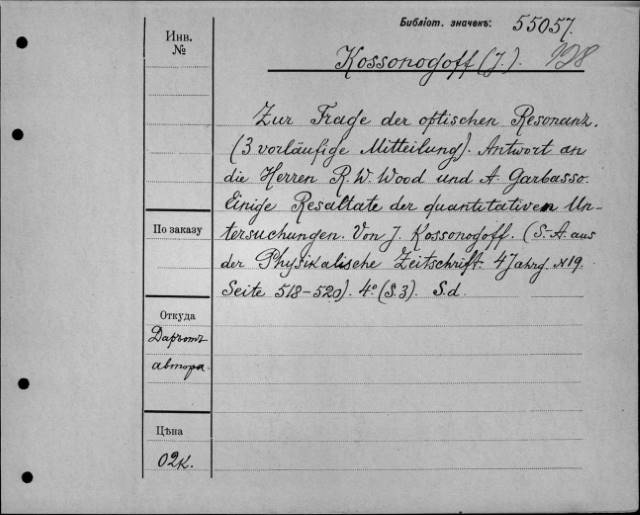 Библіот. значекъ: 55057.
Инв.
№
Kossonogoff (J.). 198
Zur Frage der optischen Resonanz.
(3 vorläufige Mitteilung). Antwort an
die Herren R. W. Wood und A. Garbasso.
Einige Resaltate der quantitativen Un-
По заказу
tersuchungen. Von J. Kossonogoff. (S.-A. aus
der Physikalische Zeitschrift. 4 Jahrg. №19.
Seite 518-520). 4° (S. 3). S.d.
Откуда
Даръотъ
автора
Цѣна
02к.